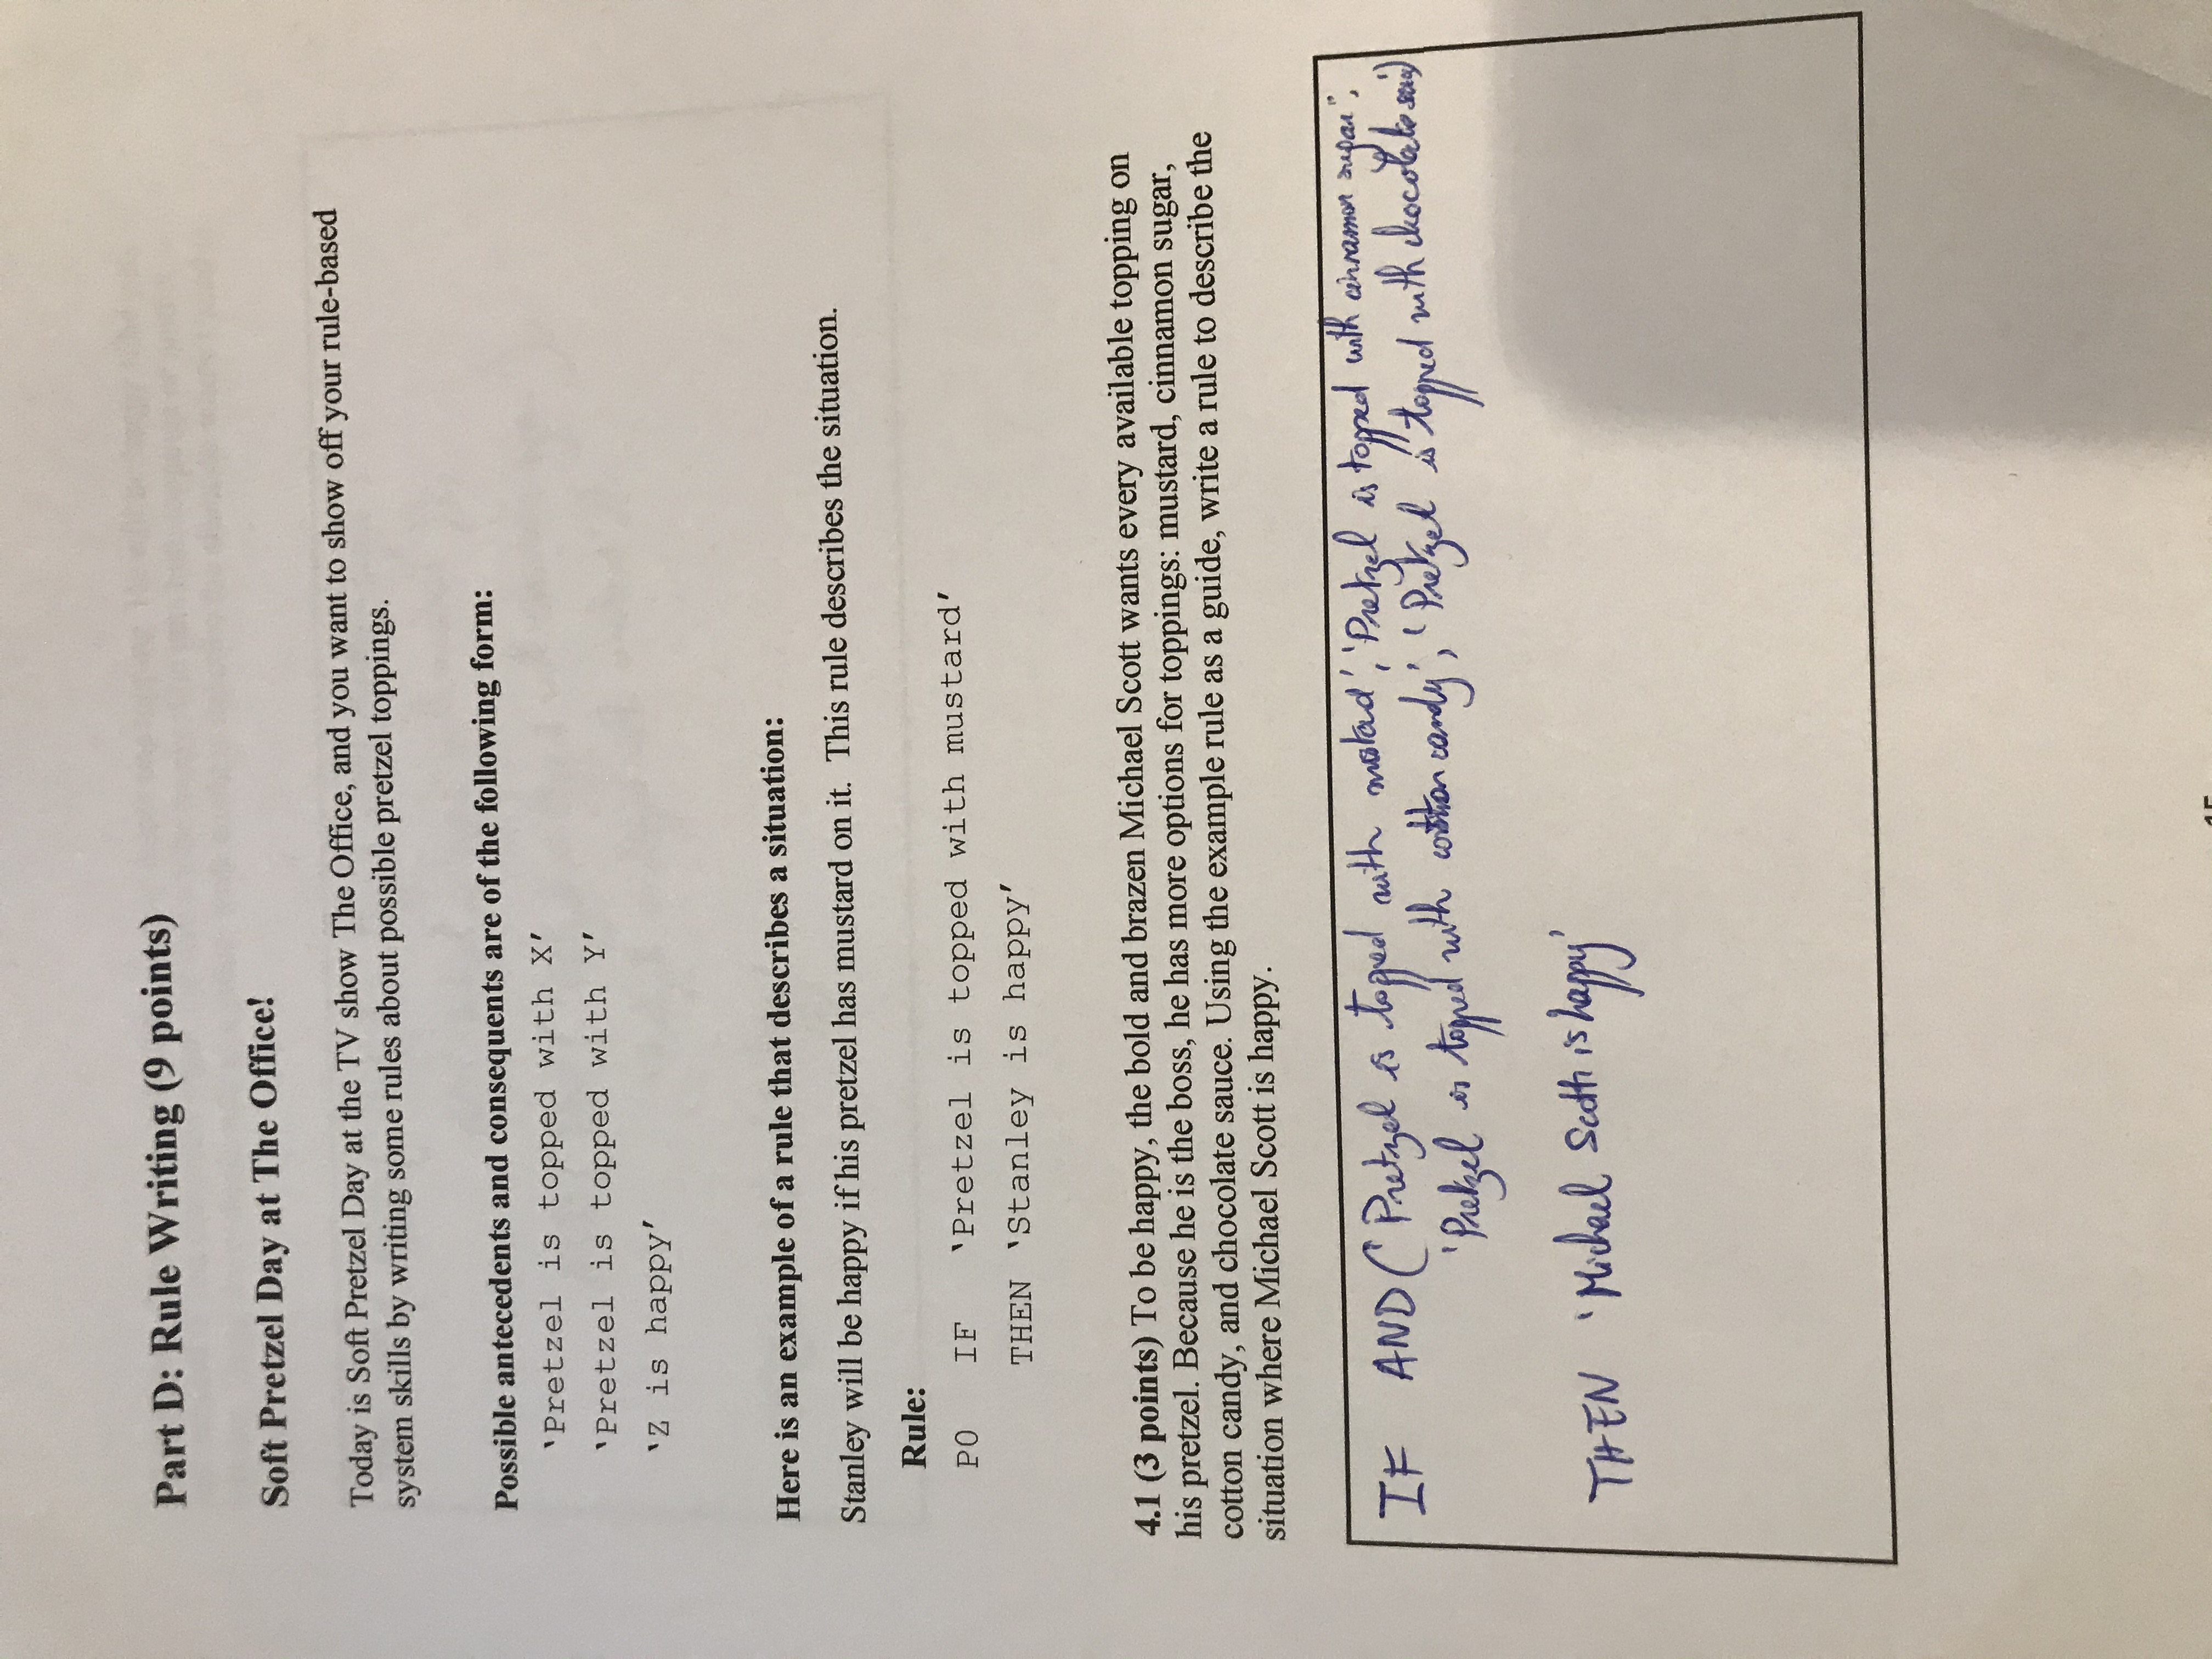 Part D: Rule Writing (9 points)
Soft Pretzel Day at The Office!
Today is Soft Pretzel Day at the TV show The Office, and you want to show off your rule-based
system skills by writing some rules about possible pretzel toppings.
Possible antecedents and consequents are of the following form:
‘Pretzel is topped with X’
‘Pretzel is topped with Y’
‘Z is happy’
Here is an example of a rule that describes a situation:
Stanley will be happy if his pretzel has mustard on it.  This rule describes the situation.
Rule:
P0 IF ‘Pretzel is topped with mustard’
THEN ‘Stanley is happy’
4.1 (3 points) To be happy, the bold and brazen Michael Scott wants every available topping on
his pretzel. Because he is the boss, he has more options for toppings: mustard, cinnamon sugar,
cotton candy, and chocolate sauce. Using the example rule as a guide, write a rule to describe the
situation where Michael Scott is happy.
IF AND ('Pretzel is topped with mustard', 'Pretzel is topped with cinnamon sugar',
'Pretzel is topped with cotton candy', 'Pretzel is topped with chocolate
THEN 'Michael Scott is happy'